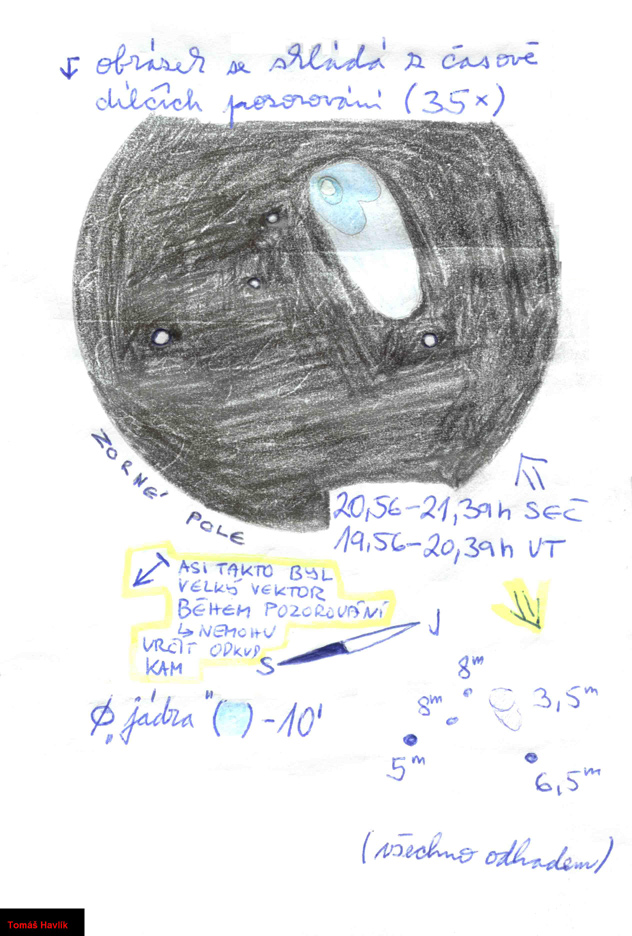 obrázek se skládá z časově
dílčích pozorování (35×)
ZORNÉ POLE
20,56-21,39h SEČ
19,56-20,39h UT
ASI TAKTO BYL
VELKÝ VEKTOR
BĚHEM POZOROVÁNÍ
↳ NEMOHU
URČIT ODKUD
KAM
J
S
ø „jádra" ( ) - 10'
8m
8m
3,5m
5m
6,5m
(všechno odhadem)
Tomáš Havlík